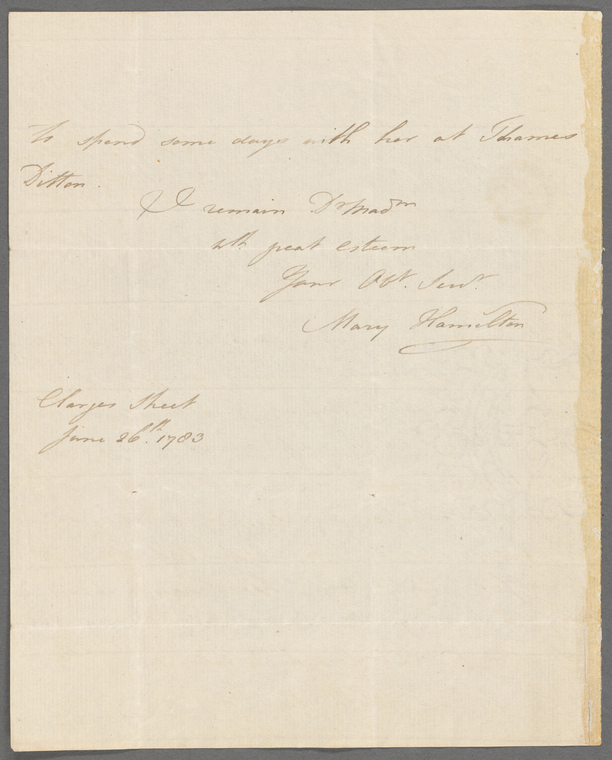 to spend some days with her at Thames
Ditton.
I remain Dr Madm
with great esteem
Your Obt. Servt.
Mary Hamilton
Clarges Street
June 26th. 1783